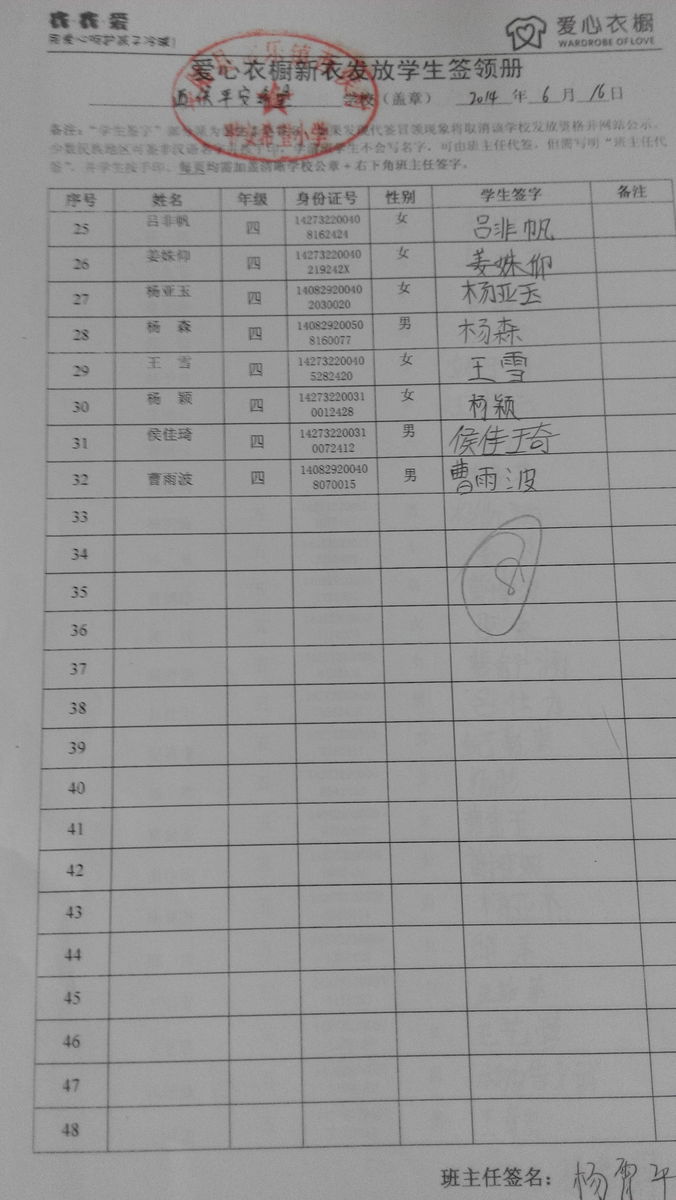 衣衣爱
用爱心呵护孩子冷暖!
爱心衣橱
WARDROBE OF LOVE
爱心衣橱新衣发放学生签领册
学校（盖章） 2014 年 6 月 16 日
少数民族地区可签非汉语名字并按手印，学前班学生不会写名字，可由班主任代签，但需写明“班主任代
签”，并学生按手印。每页均需加盖清晰学校公章+右下角班主任签字。
序号 姓名 年级 身份证号 性别 学生签字 备注
25 吕非帆 四 142732200408162424 女 吕非帆
26 姜姝仰 四 14273220040219242X 女 姜姝仰
27 杨亚玉 四 140829200402030020 女 杨亚玉
28 杨 森 四 140829200508160077 男 杨森
29 王 雪 四 142732200405282420 女 王雪
30 杨 颖 四 142732200310012428 女 杨颖
31 侯佳琦 四 142732200310072412 男 侯佳琦
32 曹雨波 四 140829200408070015 男 曹雨波
33
34 8
35
36
37
38
39
40
41
42
43
44
45
46
47
48
班主任签名：